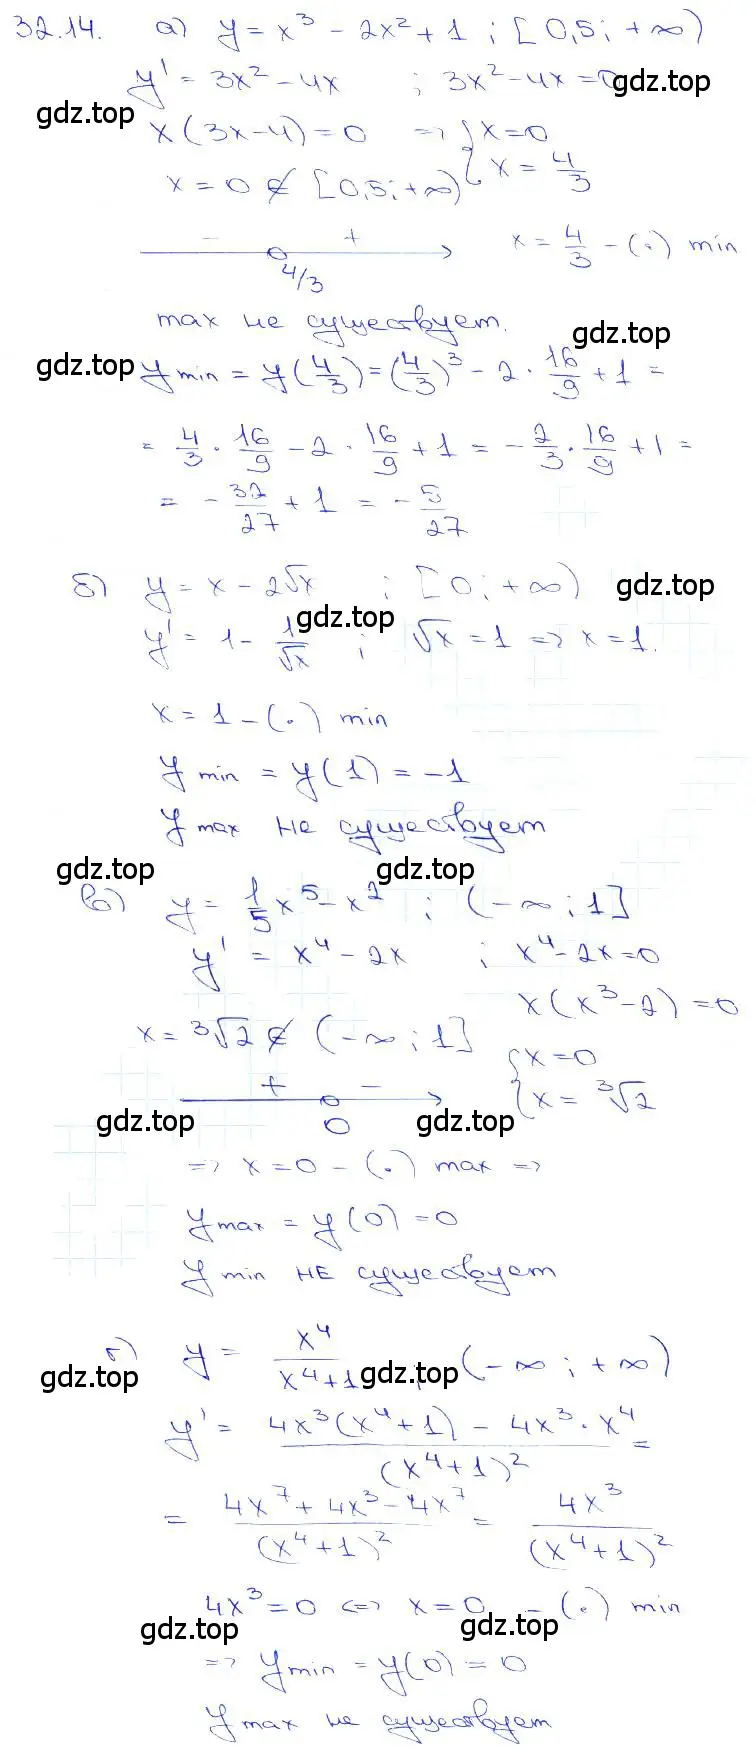 32.14. а) y = x³ - 2x² + 1 ; [0,5; +∞)
y' = 3x² - 4x ; 3x² - 4x = 0 gdz.top
gdz.top x(3x-4) = 0 => { x = 0
x = 4/3
x = 0 ∉ [0,5; +∞)
- + x = 4/3 - (·) min
4/3
max не существует.
gdz.top
gdz.top y min = y(4/3) = (4/3)³ - 2 · 16/9 + 1 =
= 4/3 · 16/9 - 2 · 16/9 + 1 = - 2/3 · 16/9 + 1 =
= - 32/27 + 1 = - 5/27
б) y = x - 2√x ; [0; +∞) gdz.top
gdz.top
y' = 1 - 1/√x ; √x = 1 => x = 1.
x = 1 - (·) min
y min = y(1) = -1
y max не существует
gdz.top gdz.top
в) y = 1/5 x⁵ - x² ; (-∞; 1]
y' = x⁴ - 2x ; x⁴ - 2x = 0
x(x³ - 2) = 0
x = ³√2 ∉ (-∞; 1]
{ x = 0
x = ³√2
+ -
0
gdz.top gdz.top
=> x = 0 - (·) max =>
y max = y(0) = 0
y min не существует
г) y = x⁴/(x⁴+1) ; (-∞; +∞)
gdz.top gdz.top
y' = (4x³(x⁴+1) - 4x³ · x⁴)/(x⁴+1)² =
= (4x⁷ + 4x³ - 4x⁷)/(x⁴+1)² = 4x³/(x⁴+1)²
4x³ = 0 <=> x = 0 - (·) min
gdz.top gdz.top
=> y min = y(0) = 0
y max не существует